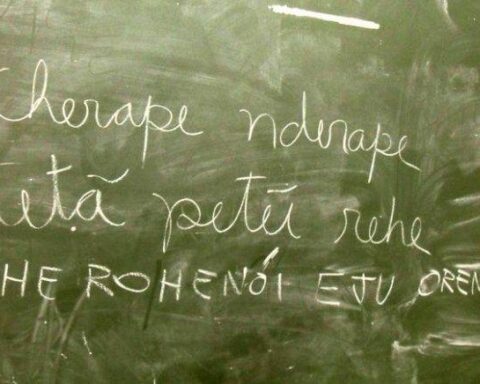 Cherape nderape
ietã peteĩ rehe
HE ROHENÓI EJU OREN